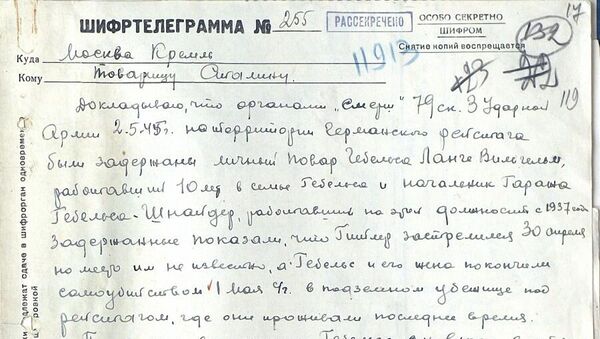 17
ШИФРТЕЛЕГРАММА № 255
РАССЕКРЕЧЕНО
ОСОБО СЕКРЕТНО
ШИФРОМ
Снятие копий воспрещается
132
Куда Москва Кремль
11913
Кому Товарищу Сталину.
119
Докладываю, что органами "Смерш" 79 ск. 3 Ударной
Армии 2.5.45г. на территории Германского рейхстага
были задержаны личный повар Гебельса Ланге Вильгельм,
работавший 10 лет в семье Гебельса и начальник гаража
Гебельса-Шнайдер, работавший на этой должности с 1937 года
Задержанные показали, что Гитлер застрелился 30 апреля
но место им не известно, а Гебельс и его жена покончили
самоубийством 1 мая с/г. в подземном убежище под
рейхстагом, где они проживали последнее время.
длежат сдаче в шифрорган одновремен
ровкой